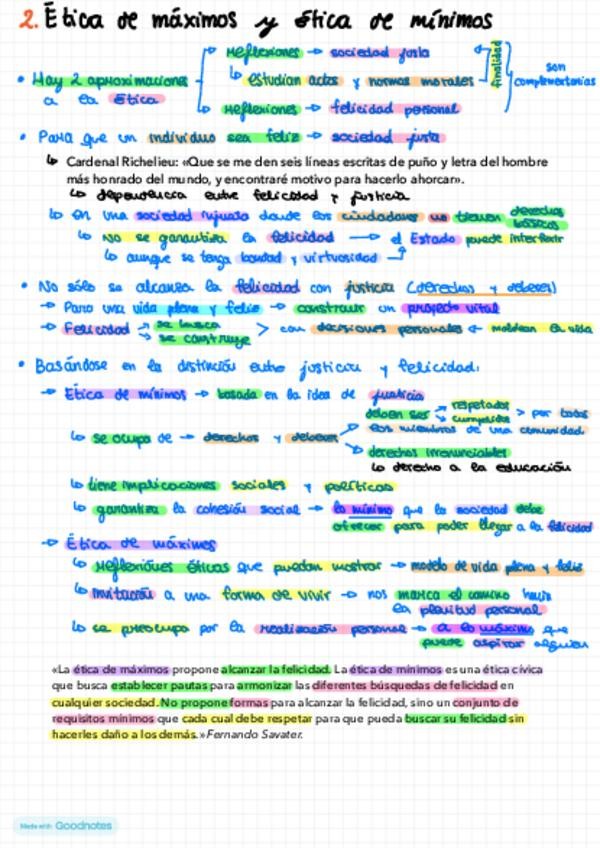 2. Ética de máximos y ética de mínimos
Reflexiones → sociedad justa
• Hay 2 aproximaciones a la ética
↳ estudian actos y normas morales
finalidad
son complementarias
Reflexiones → felicidad personal
• Para que un individuo sea feliz → sociedad justa
↳ Cardenal Richelieu: «Que se me den seis líneas escritas de puño y letra del hombre
más honrado del mundo, y encontraré motivo para hacerlo ahorcar».
↳ dependencia entre felicidad y justicia
↳ En una sociedad injusta donde los ciudadanos no tienen derechos básicos
↳ No se garantiza la felicidad → el Estado puede interferir
↳ aunque se tenga bondad y virtuosidad
• No sólo se alcanza la felicidad con justicia (derechos y deberes)
→ Para una vida plena y feliz → construir un proyecto vital
→ Felicidad → se busca
→ se construye > con decisiones personales ← moldean la vida
• Basándose en la distinción entre justicia y felicidad:
→ Ética de mínimos → basada en la idea de justicia
deben ser → respetados
→ cumplidos > por todos
los miembros de una comunidad
↳ se ocupa de → derechos y deberes
derechos irrenunciables
↳ derecho a la educación
↳ tiene implicaciones sociales y políticas
↳ garantiza la cohesión social → lo mínimo que la sociedad debe
ofrecer para poder llegar a la felicidad
→ Ética de máximos
↳ Reflexiones éticas que puedan mostrar → modelo de vida plena y feliz
↳ invitación a una forma de vivir → nos marca el camino hacia
la plenitud personal
↳ se preocupa por la realización personal → a lo máximo que
puede aspirar alguien
«La ética de máximos propone alcanzar la felicidad. La ética de mínimos es una ética cívica
que busca establecer pautas para armonizar las diferentes búsquedas de felicidad en
cualquier sociedad. No propone formas para alcanzar la felicidad, sino un conjunto de
requisitos mínimos que cada cual debe respetar para que pueda buscar su felicidad sin
hacerles daño a los demás.» Fernando Savater.
Made with Goodnotes